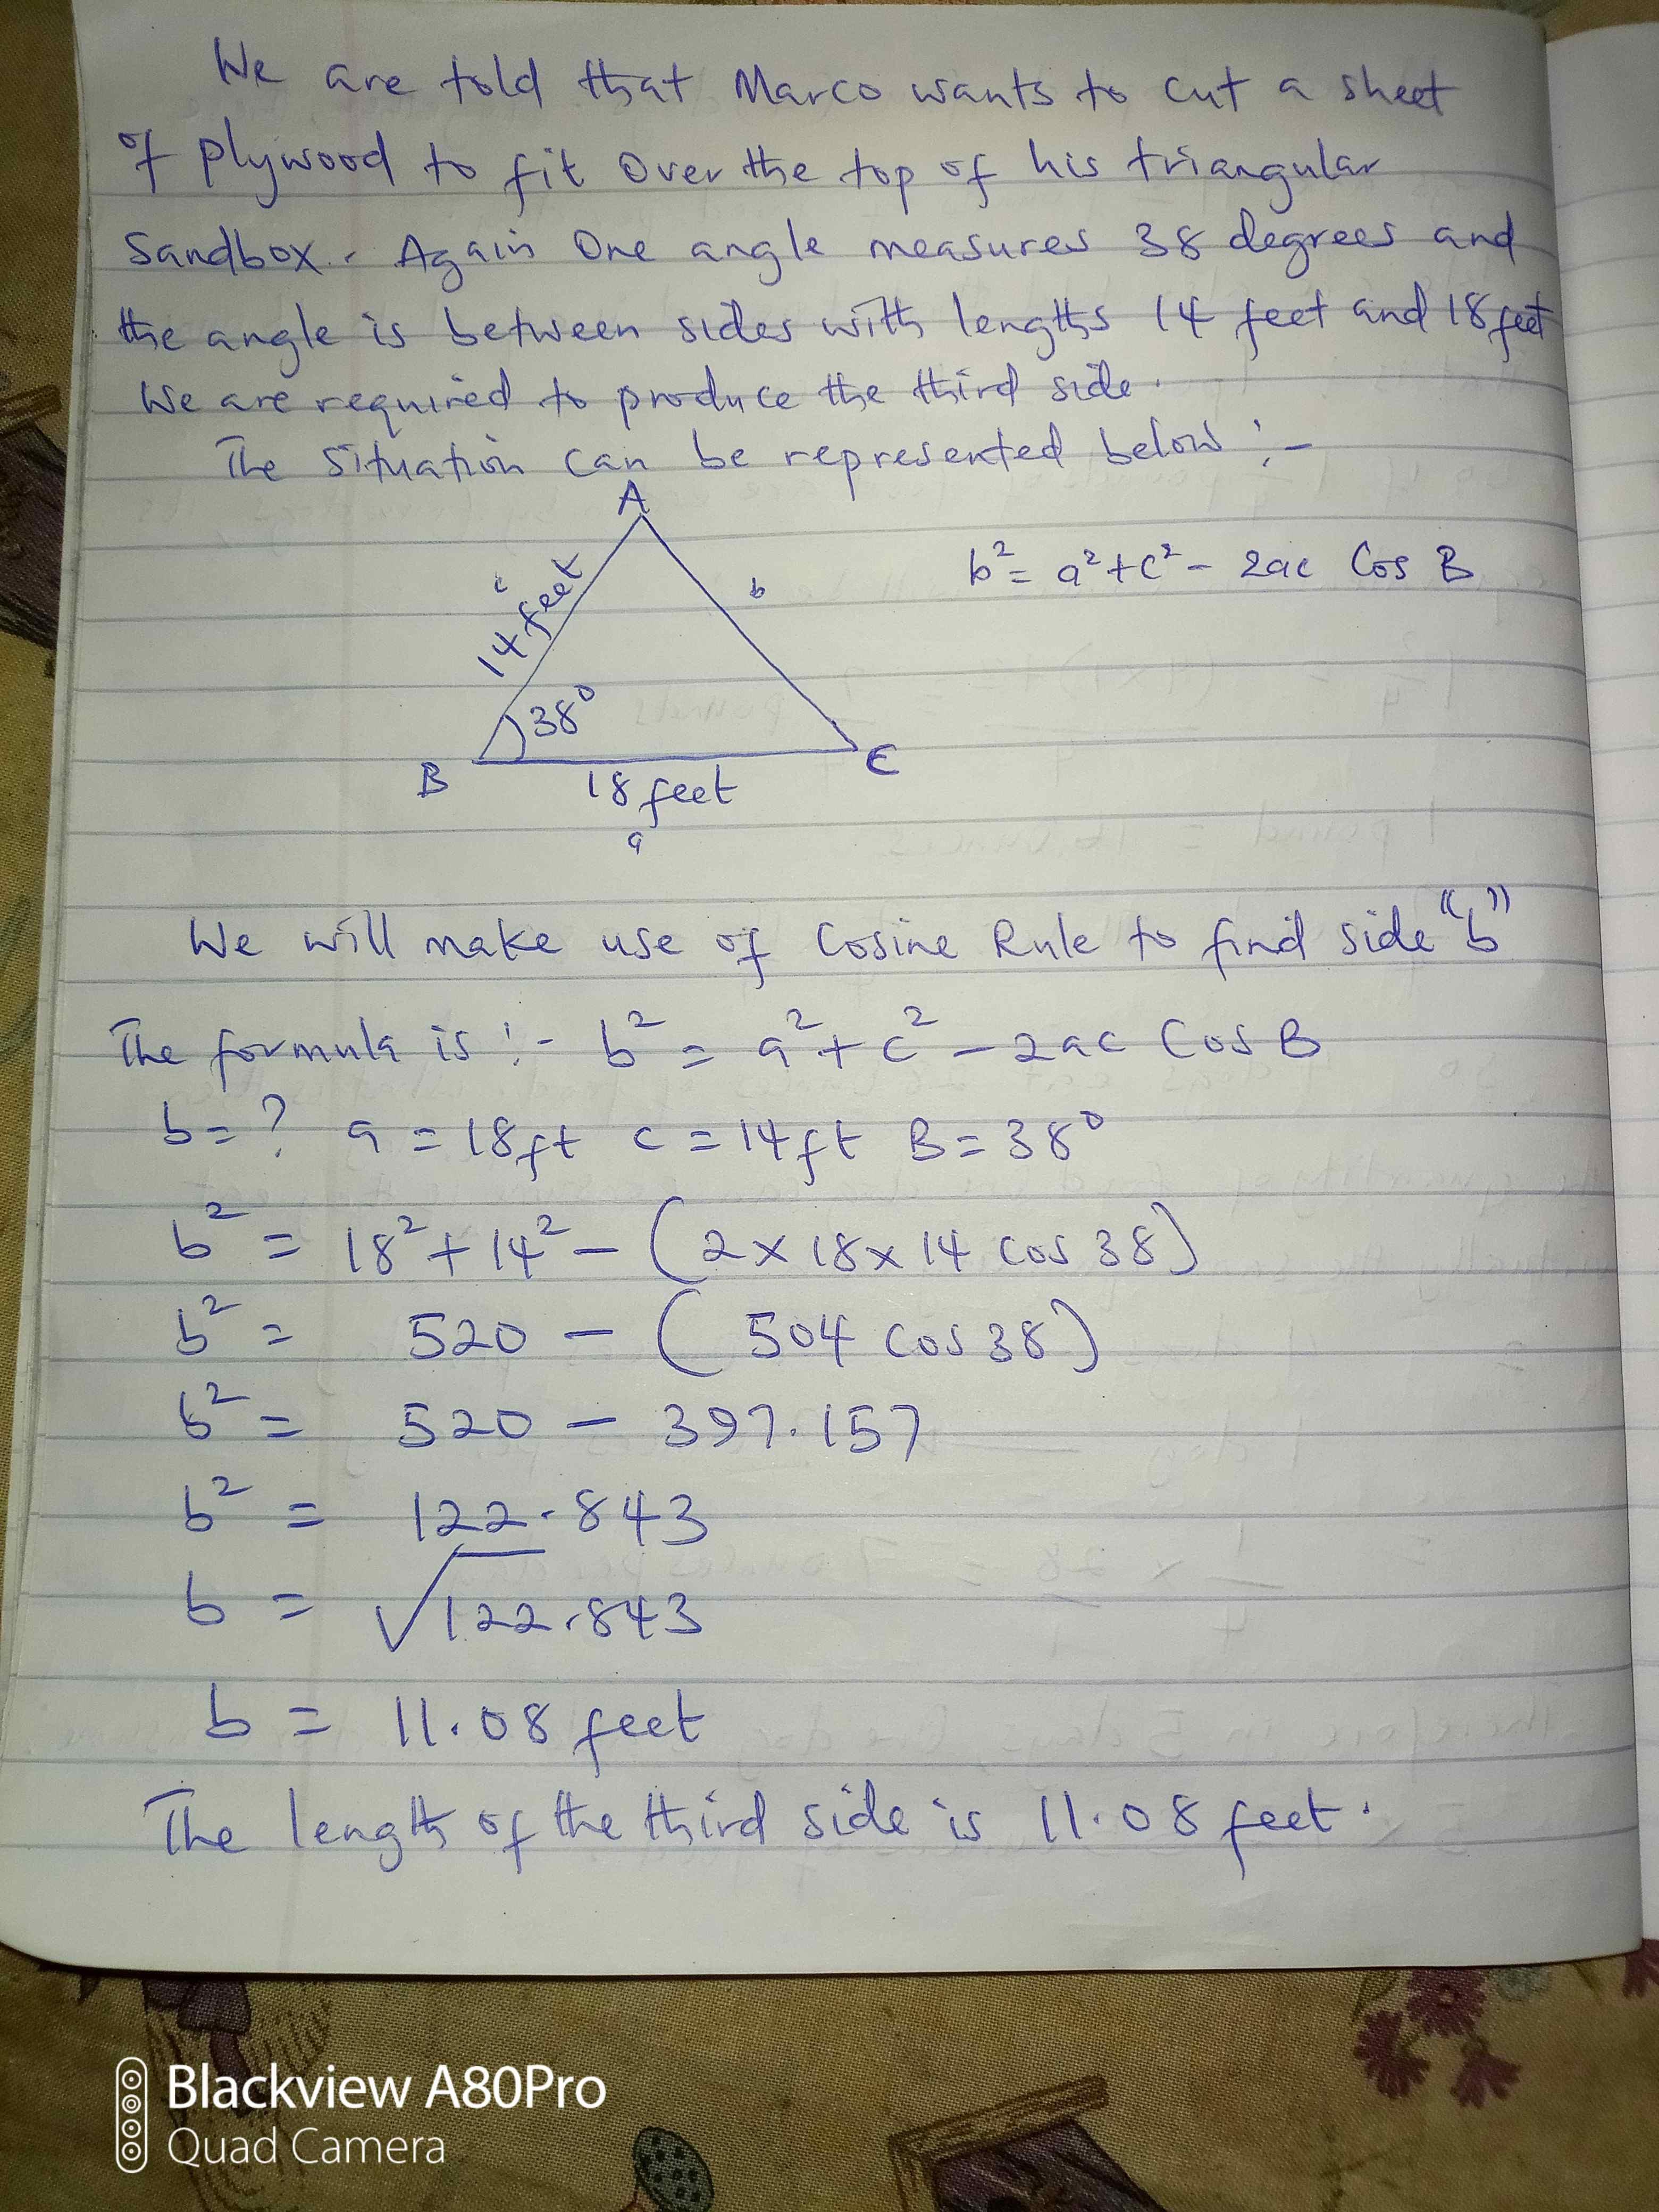 We are told that Marco wants to cut a sheet
of plywood to fit over the top of his triangular
Sandbox. Again One angle measures 38 degrees and
the angle is between sides with lengths 14 feet and 18 feet
We are required to produce the third side.
The situation can be represented below :-
A
c
14 feet
b
b² = a² + c² - 2ac Cos B
38°
B
C
18 feet
a
We will make use of Cosine Rule to find side "b"
The formula is :- b² = a² + c² - 2ac Cos B
b = ? a = 18ft c = 14ft B = 38°
b² = 18² + 14² - (2 x 18 x 14 cos 38)
b² = 520 - (504 cos 38)
b² = 520 - 397.157
b² = 122.843
b = √122.843
b = 11.08 feet
The length of the third side is 11.08 feet.
Blackview A80Pro
Quad Camera